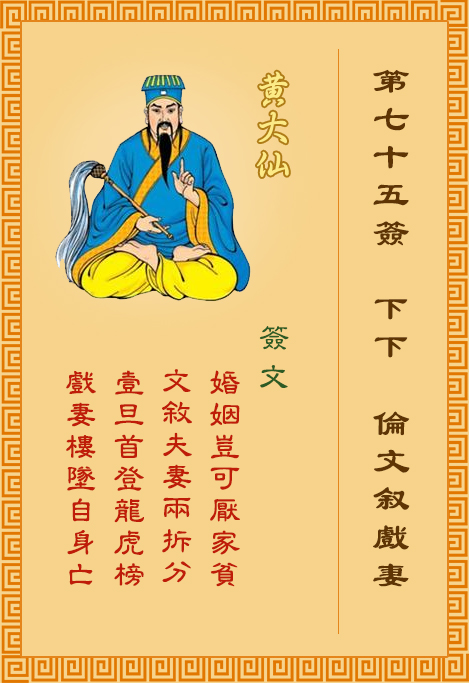 第七十五簽 下下 倫文叙戲妻
黄大仙
簽文
婚姻豈可厭家貧
文敘夫妻兩拆分
壹旦首登龍虎榜
戲妻樓墜自身亡